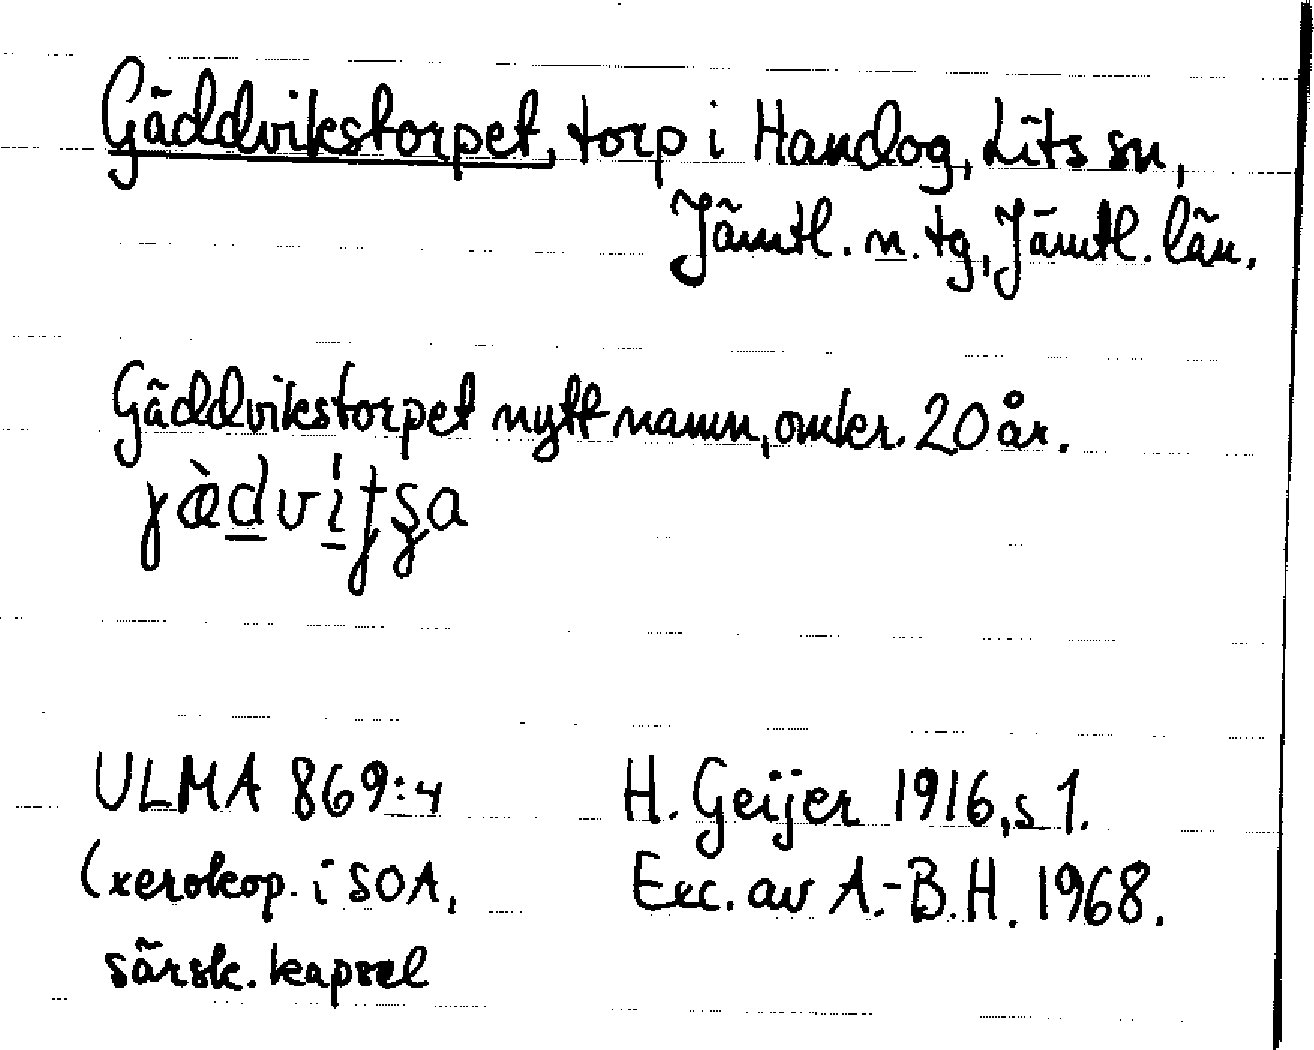 Gäddvikstorpet, torp i Handog, Lits sn,
Jämtl. n. tg, Jämtl. län.
Gäddvikstorpet nytt namn, omkr. 20 år.
ULMA 869:4
H. Geijer 1916, s 1.
(xerokop. i SOA,
Exc. av A.-B.H. 1968.
särsk. kapsel